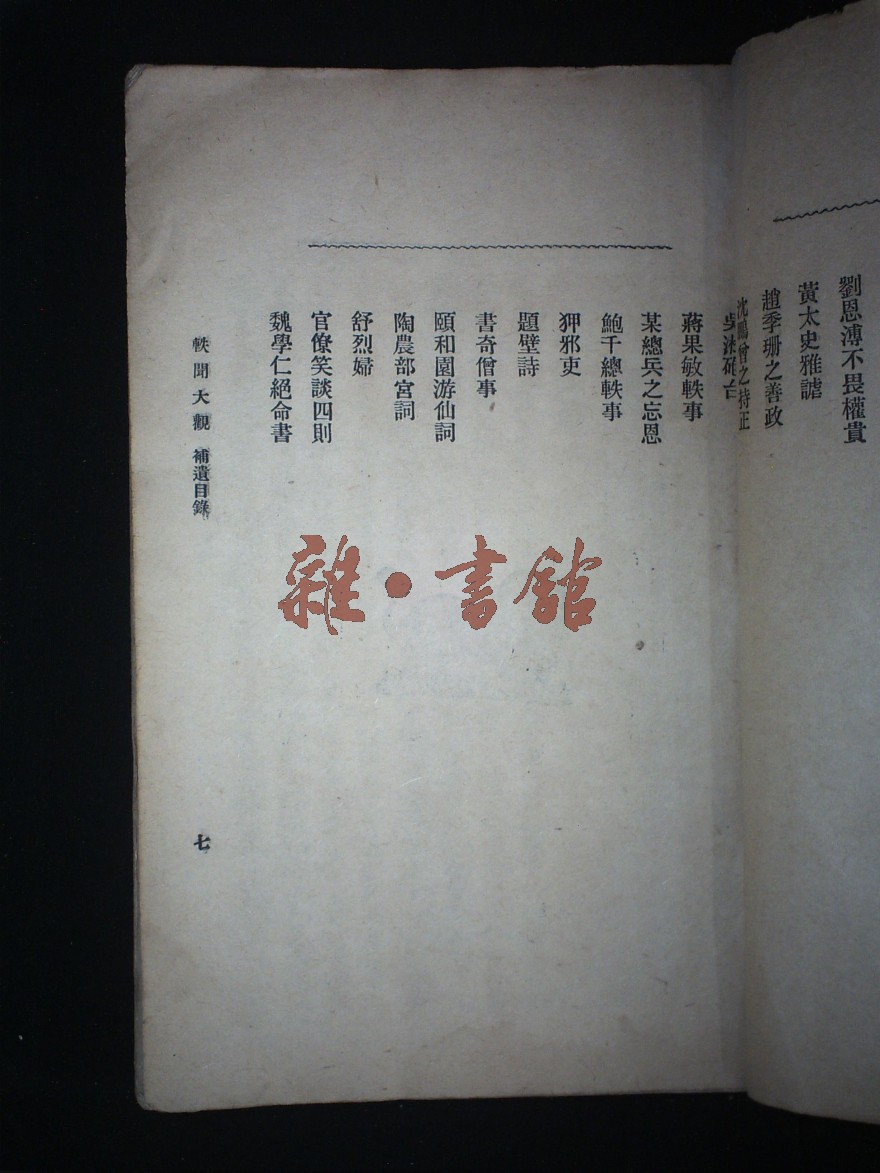 劉恩溥不畏權貴
黃太史雅謔
趙季珊之善政
沈鵬曾之持正
蔣果敏軼事
某總兵之忘恩
鮑千總軼事
狎邪吏
題壁詩
書奇僧事
頤和園游仙詞
陶農部宮詞
舒烈婦
官僚笑談四則
魏學仁絕命書
軼聞大觀 補遺目錄
七
雜·書館